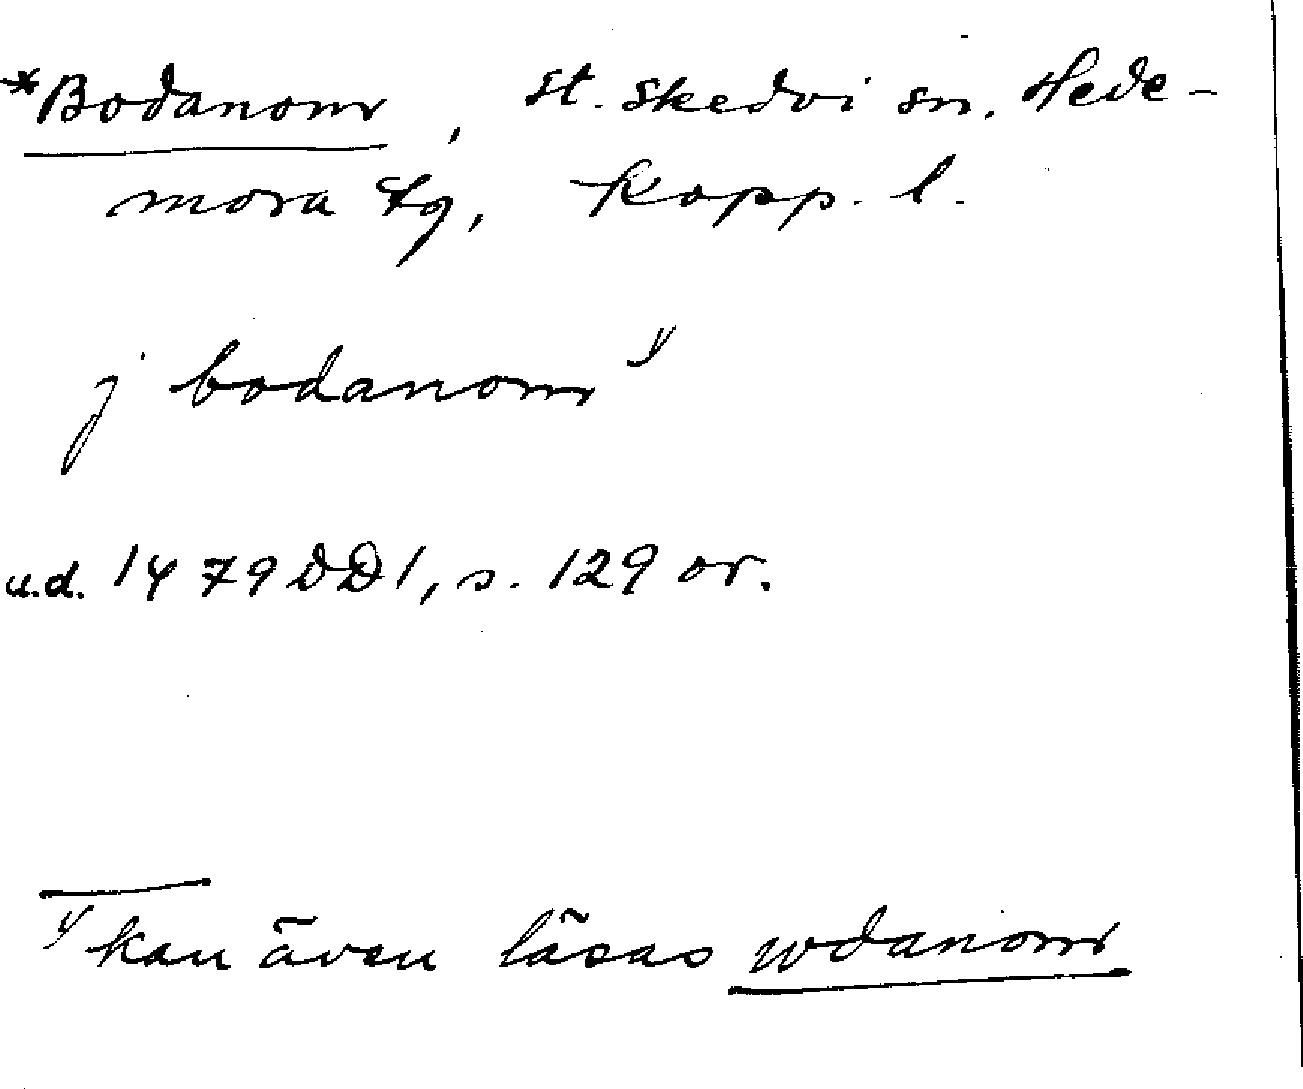 *Bodanom, St. Skedvi sn. Hede-
mora tg, Kopp. l.
j bodanom 1)
u.d. 1479 DD 1, s. 129 or.
1) kan även läsas wdanom